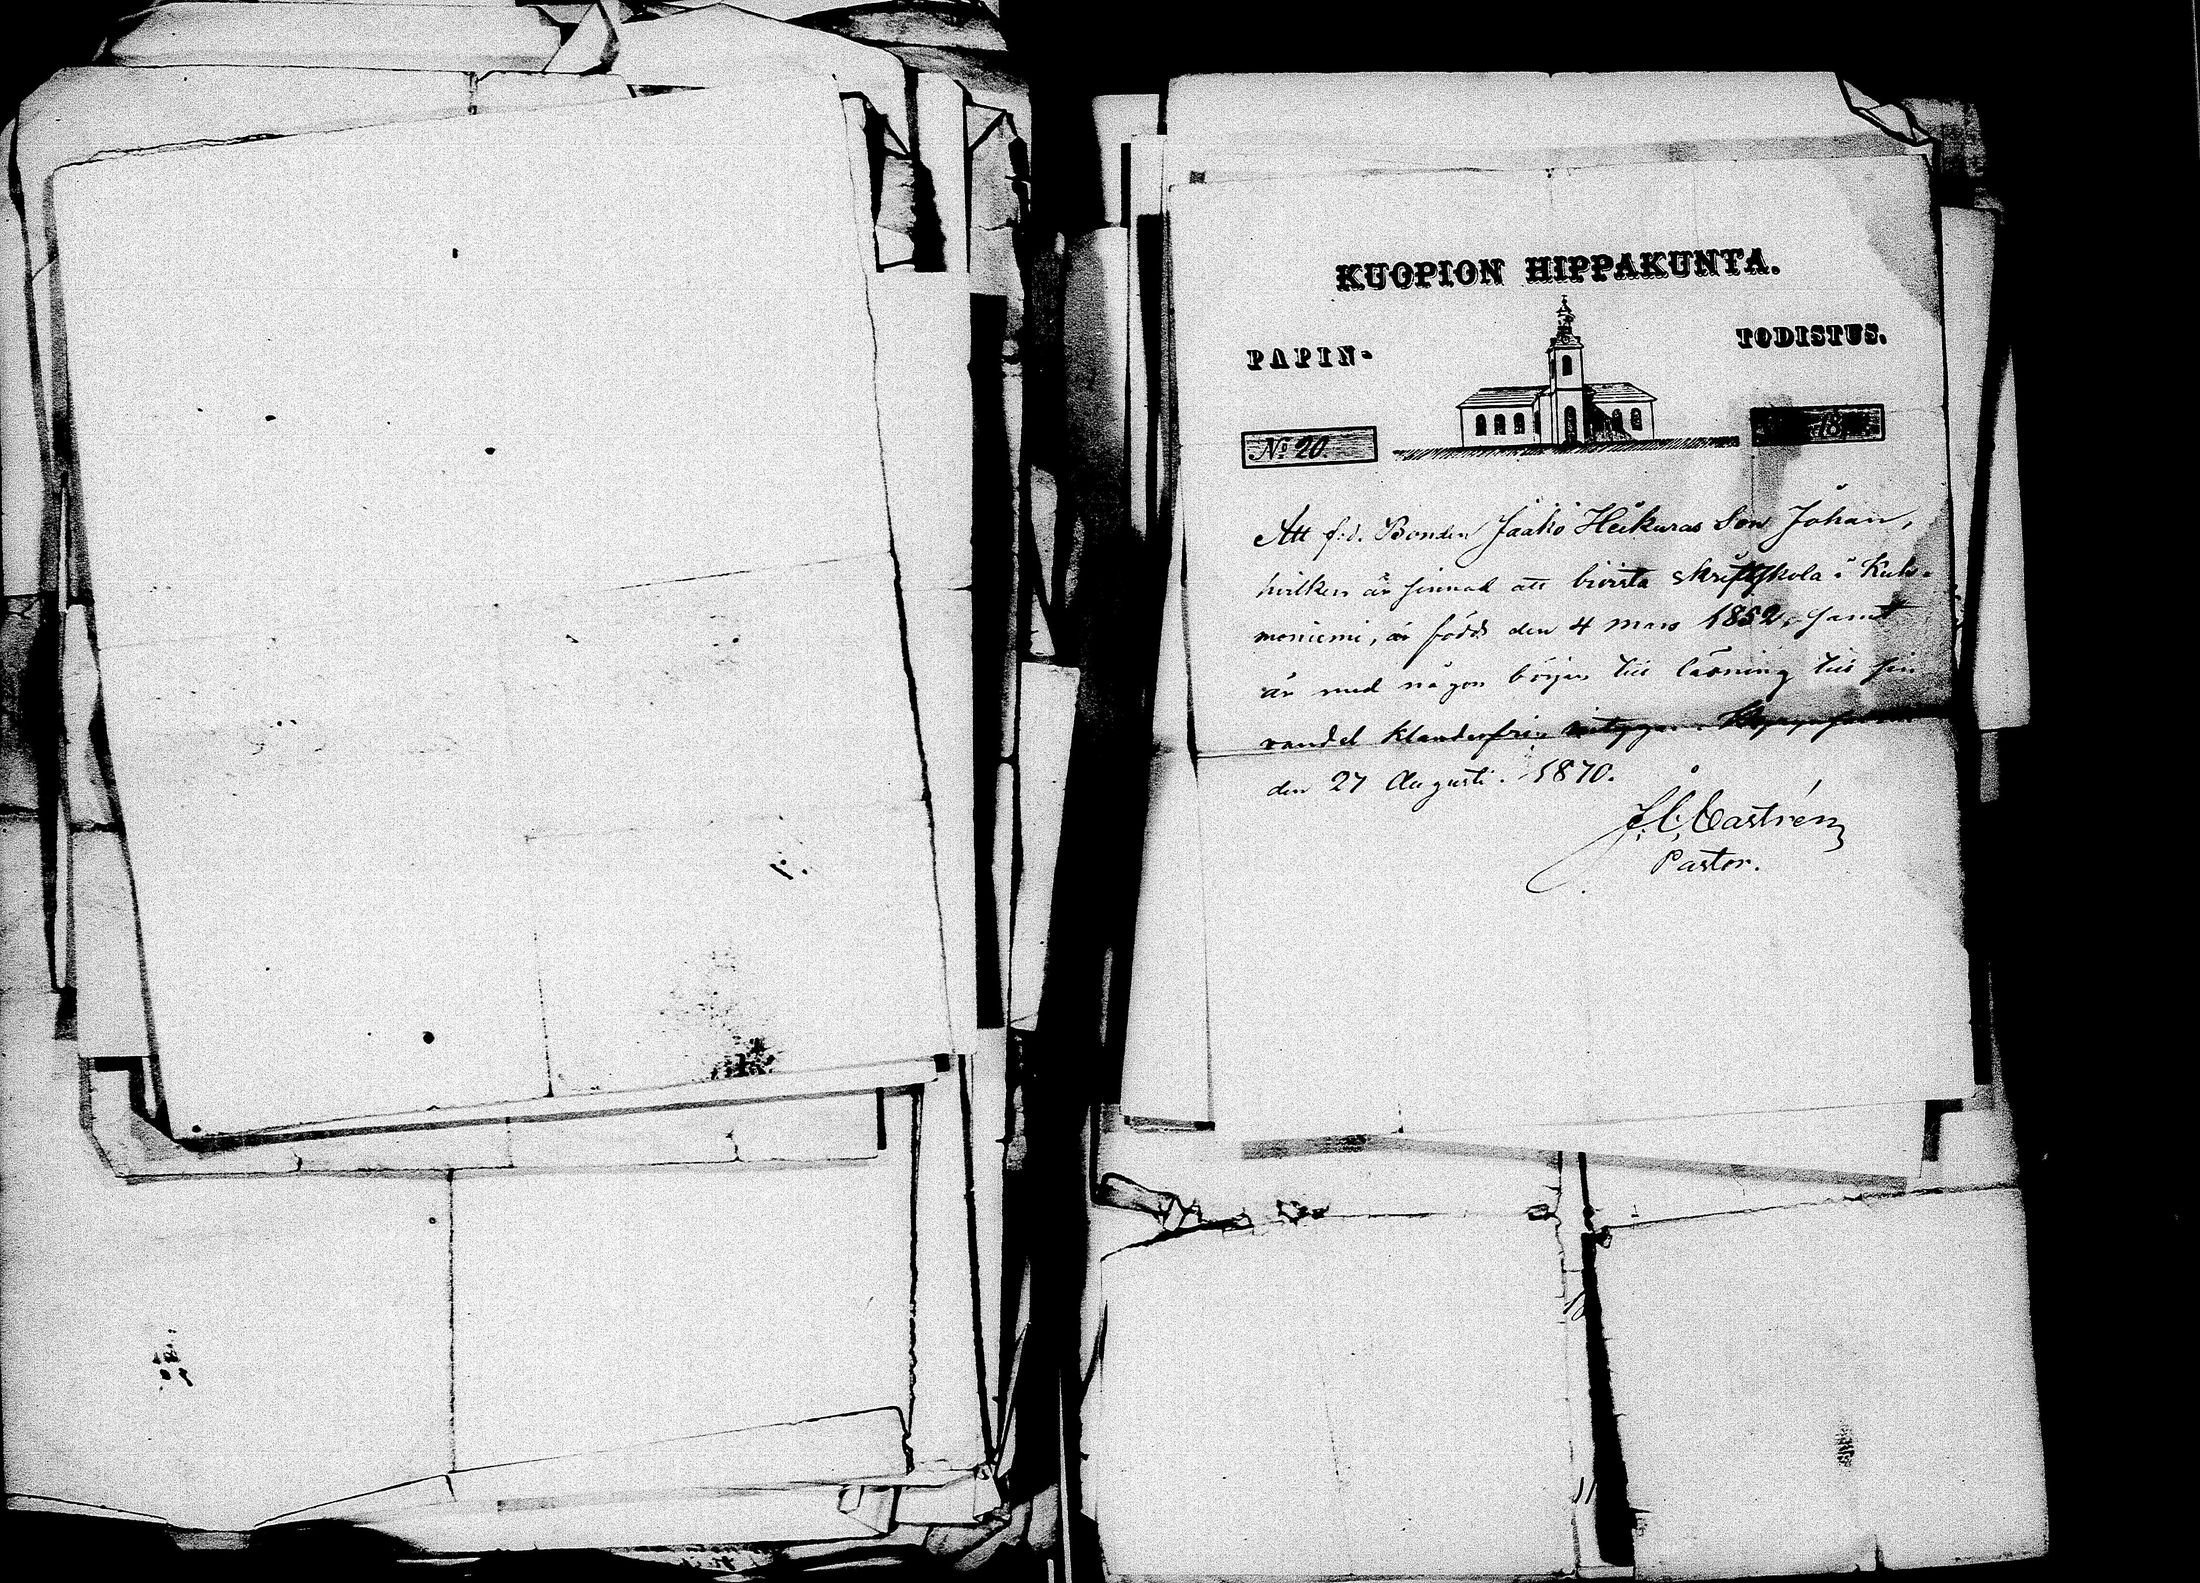 KUOPION HIPPAKUNTA.
PAPIN-
TODISTUS.
No 20.
18
Att f.d. Bonden Jaako Heikuras Son Johan,
hvilken är sinnad att bivista skriftskola i Kuh-
moniemi, är född den 4 mars 1852, samt
är med någon början till läsning till sin
vandel klanderfri, intygar.
den 27 Augusti. 1870.
J. C. Castrén
Pastor.